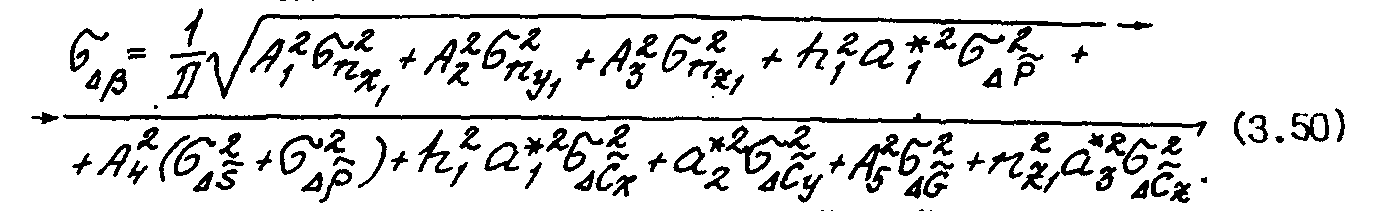 σ_{Δβ} = \frac{1}{Д}\sqrt{A_1^2 σ_{n_{x_1}}^2 + A_2^2 σ_{n_{y_1}}^2 + A_3^2 σ_{n_{z_1}}^2 + h_1^2 a_1^{*2} σ_{Δ\tilde{P}}^2 + →
→ + A_4^2 (σ_{Δ\tilde{S}}^2 + σ_{Δ\tilde{ρ}}^2) + h_1^2 a_1^{*2} σ_{Δ\tilde{C}_x}^2 + a_2^{*2} σ_{Δ\tilde{C}_y}^2 + A_5^2 σ_{Δ\tilde{G}}^2 + n_{z_1}^2 a_3^{*2} σ_{Δ\tilde{C}_z}^2}. (3.50)